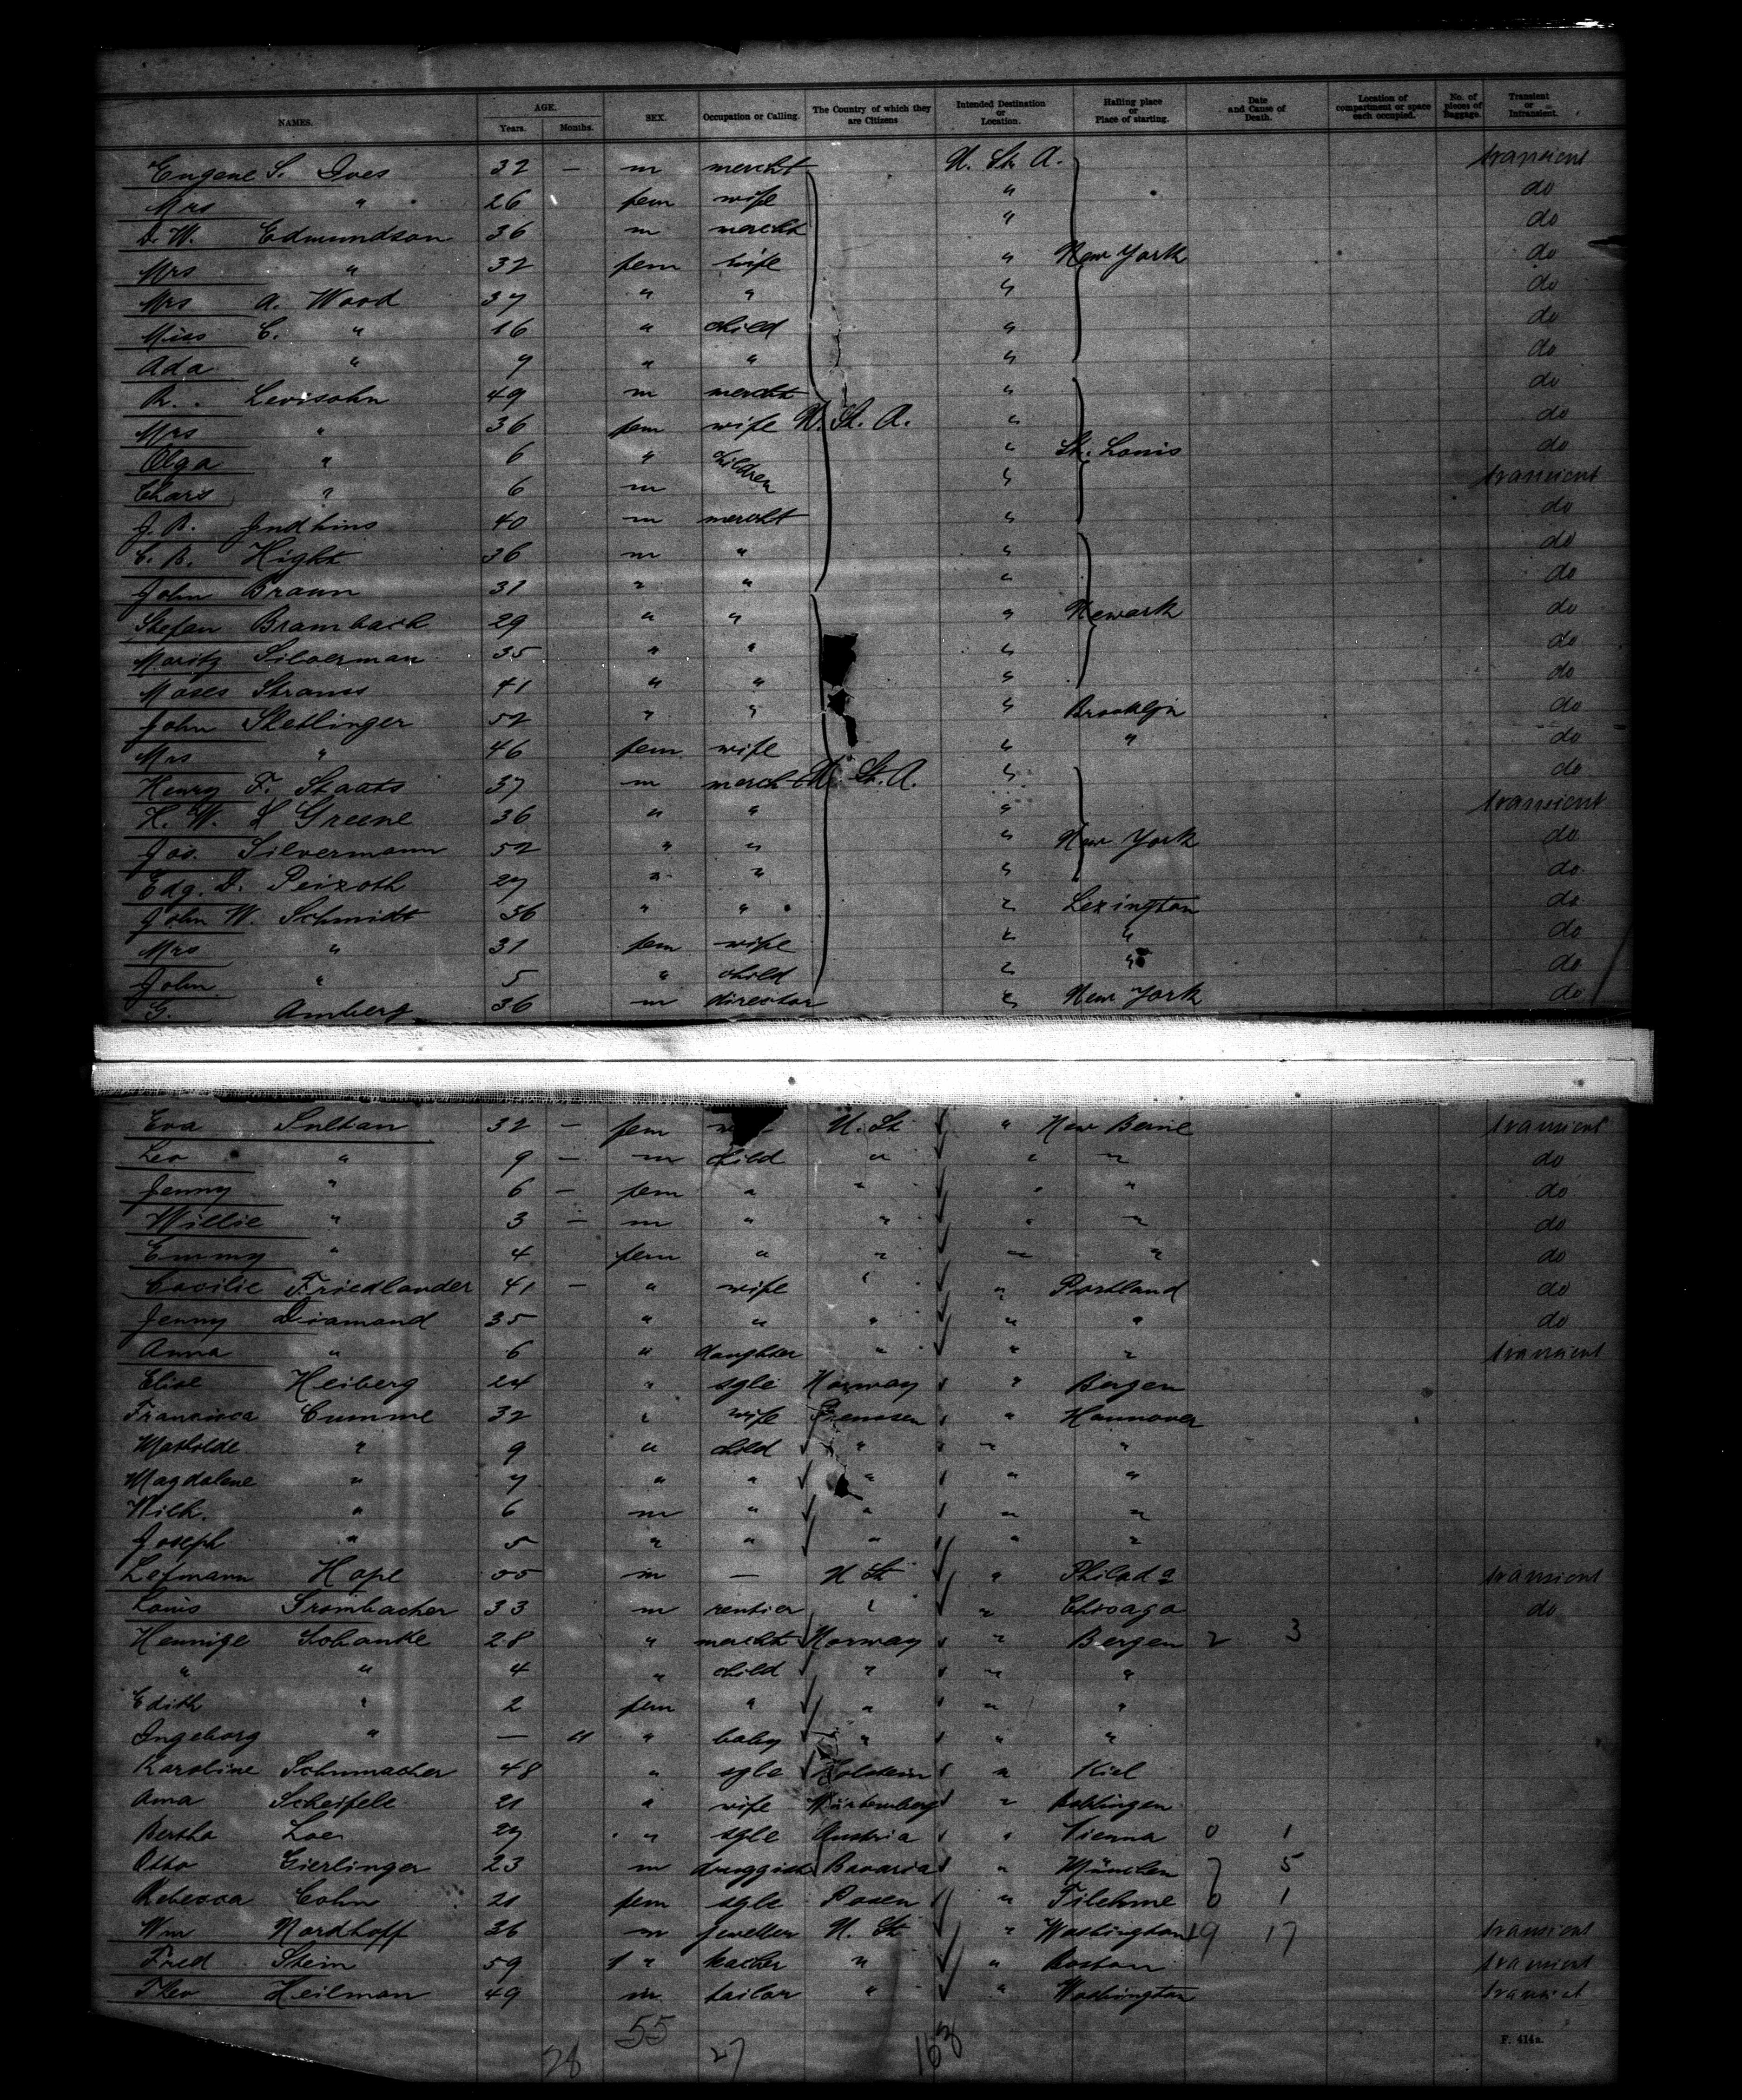 NAMES. AGE. Years. Months. SEX. Occupation or Calling. The Country of which they are Citizens Intended Destination or Location. Halling place or Place of starting. Date and Cause of Death. Location of compartment or space each occupied. No. of pieces of Baggage. Transient or Intransient.
Eugene S. Ives 32 — m mercht U. St. A. transient
Mrs " 26 fem wife " do
D. W. Edmundson 36 m mercht " do
Mrs " 32 fem wife " New York do
Mrs A. Wood 37 " " " do
Miss C. " 16 " child " do
Ada " 9 " " " do
R. Levisohn 49 m mercht " do
Mrs " 36 fem wife U. St. A. " do
Olga " 6 " children " St. Louis do
Chars " 6 m " transient
J. B. Judkins 40 m mercht " do
C. B. Hight 36 m " " do
John Braun 31 " " " do
Stefan Brambach 29 " " " Newark do
Moritz Silverman 35 " " " do
Moses Strauss 41 " " " do
John Stetlinger 52 " " " Brooklyn do
Mrs " 46 fem wife " " do
Henry F. Staats 37 m mercht U. St. A. " do
H. W. L Greene 36 " " " transient
Jos. Silvermann 52 " " " New York do
Edg. D. Peixoth 27 " " " do
John W. Schmidt 36 " " " Lexington do
Mrs " 31 fem wife " " do
John " 5 " child " " do
G. Amberg 36 m director " New York do
Eva Sultan 32 — fem U. St " New Berne transient
Leo " 9 — m child " " " do
Jenny " 6 — fem " " " " do
Willie " 3 — m " " " " do
Emmy " 4 fem " " " " do
Cecilie Friedlander 41 — " wife " " Portland do
Jenny Diamond 35 " " " " " do
Anna " 6 " daughter " " " transient
Elise Heiberg 24 " sgle Norway " Bergen
Francisca Cumme 32 " wife Preussen " Hannover
Mathilde " 9 " child " " "
Magdalene " 7 " " " " "
Wilh. " 6 m " " " "
Joseph " 5 " " " " "
Lefmann Hope 55 m — U St " Philada transient
Louis Trombacher 33 m rentier " " Chicago do
Hennige Schanke 28 " mercht Norway " Bergen 2 3
" " 4 " child " " "
Edith " 2 fem " " " "
Ingeborg " — 11 " baby " " "
Karoline Schumacher 48 " sgle Holstein " Kiel
Anna Scheifele 21 " wife Würtemberg "
Bertha 27 " sgle Austria " Vienna 0 1
Otto Gierlinger 23 m druggist Bavaria " München 7 5
Rebecca Cohn 21 fem sgle Posen " Filehme 0 1
Wm Nordhoff 36 m jeweller U. St " Washington 19 17 transient
Fred Stein 59 1 " teacher " " Boston transient
Theo Heilman 49 m tailor " " Washington transient
55
28 27 168
F. 414a.